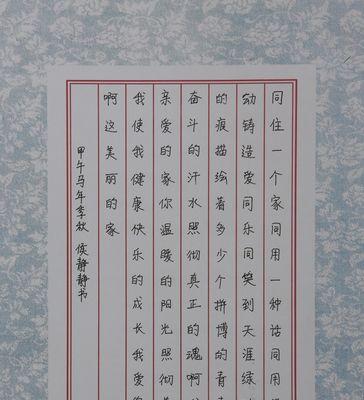 同住一个家同用一种话同用
勤铸造爱同乐同笑到天涯绿
的痕描绘着多少个拼博的青
奋斗的汗水照彻真正的魂啊
亲爱的家你温暖的阳光照彻
我使我健康快乐的成长我爱
啊这美丽的家
甲午马年季秋 侯静静书